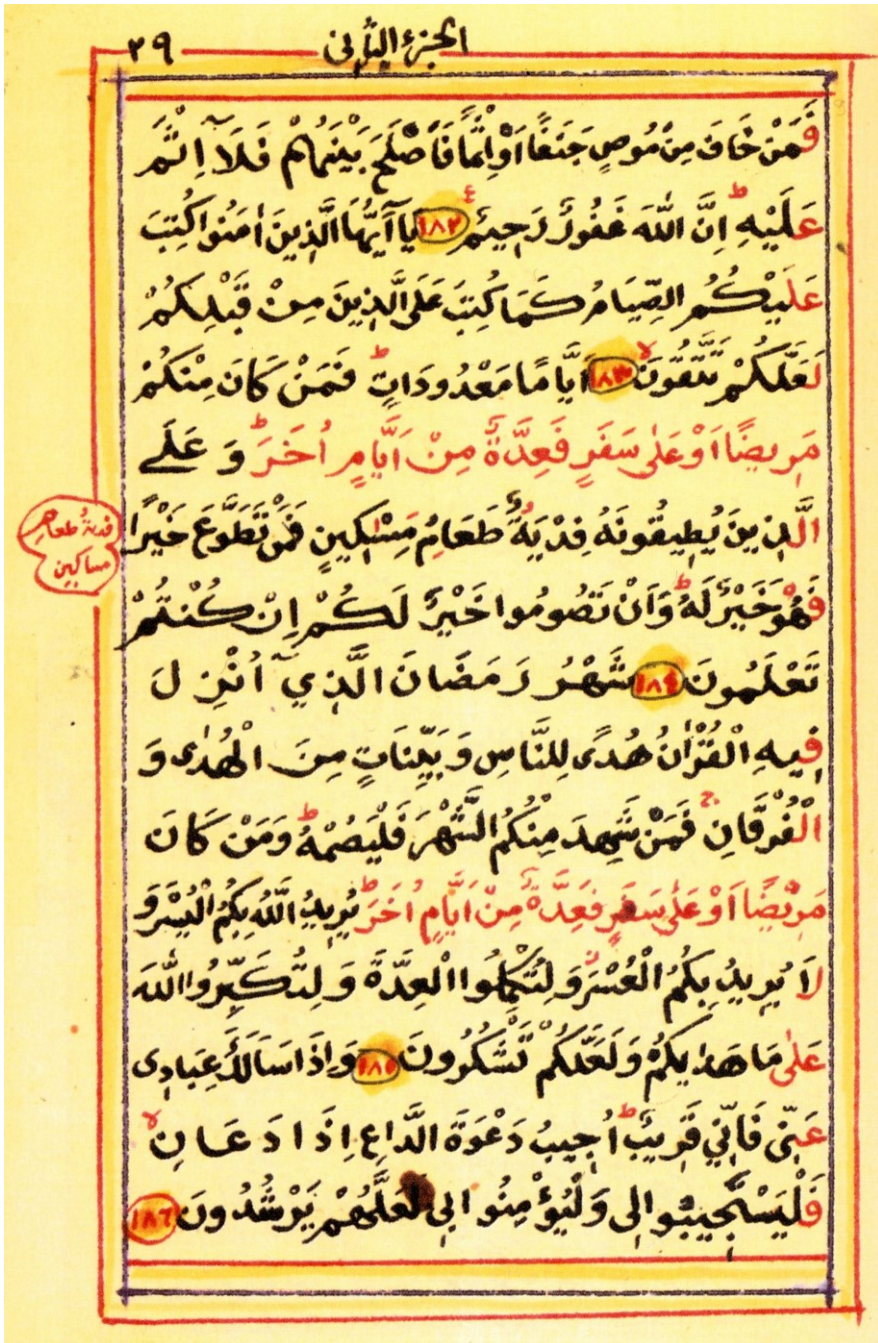 ٢٩ الجزء الثاني
فَمَنْ خَافَ مِنْ مُوصٍ جَنَفًا اَوْ اِثْمًا فَاَصْلَحَ بَيْنَهُمْ فَلَآ اِثْمَ
عَلَيْهِ ؕ اِنَّ اللّٰهَ غَفُورٌ رَحِيمٌ ١٨٢ يَآ اَيُّهَا الَّذِينَ اٰمَنُوا كُتِبَ
عَلَيْكُمُ الصِّيَامُ كَمَا كُتِبَ عَلَى الَّذِينَ مِنْ قَبْلِكُمْ
لَعَلَّكُمْ تَتَّقُونَ ۙ ١٨٣ اَيَّامًا مَعْدُودَاتٍ ؕ فَمَنْ كَانَ مِنْكُمْ
مَرِيضًا اَوْ عَلٰى سَفَرٍ فَعِدَّةٌ مِنْ اَيَّامٍ اُخَرَ ؕ وَ عَلَى
الَّذِينَ يُطِيقُونَهُ فِدْيَةٌ طَعَامُ مِسْكِينٍ فَمَنْ تَطَوَّعَ خَيْرًا
فدية طعام
مساكين
فَهُوَ خَيْرٌ لَهُ ؕ وَاَنْ تَصُومُوا خَيْرٌ لَكُمْ اِنْ كُنْتُمْ
تَعْلَمُونَ ١٨٤ شَهْرُ رَمَضَانَ الَّذِيٓ اُنْزِلَ
فِيهِ الْقُرْاٰنُ هُدًى لِلنَّاسِ وَبَيِّنَاتٍ مِنَ الْهُدٰى وَ
الْفُرْقَانِ ۚ فَمَنْ شَهِدَ مِنْكُمُ الشَّهْرَ فَلْيَصُمْهُ ؕ وَمَنْ كَانَ
مَرِيضًا اَوْ عَلٰى سَفَرٍ فَعِدَّةٌ مِنْ اَيَّامٍ اُخَرَ ؕ يُرِيدُ اللّٰهُ بِكُمُ الْيُسْرَ وَ
لَا يُرِيدُ بِكُمُ الْعُسْرَ وَلِتُكْمِلُوا الْعِدَّةَ وَ لِتُكَبِّرُوا اللّٰهَ
عَلٰى مَا هَدٰيكُمْ وَلَعَلَّكُمْ تَشْكُرُونَ ١٨٥ وَاِذَا سَاَلَكَ عِبَادِى
عَنِّى فَاِنِّي قَرِيبٌ ؕ اُجِيبُ دَعْوَةَ الدَّاعِ اِذَا دَعَانِ ۙ
فَلْيَسْتَجِيبُوا لِى وَلْيُؤْمِنُوا بِى لَعَلَّهُمْ يَرْشُدُونَ ١٨٦